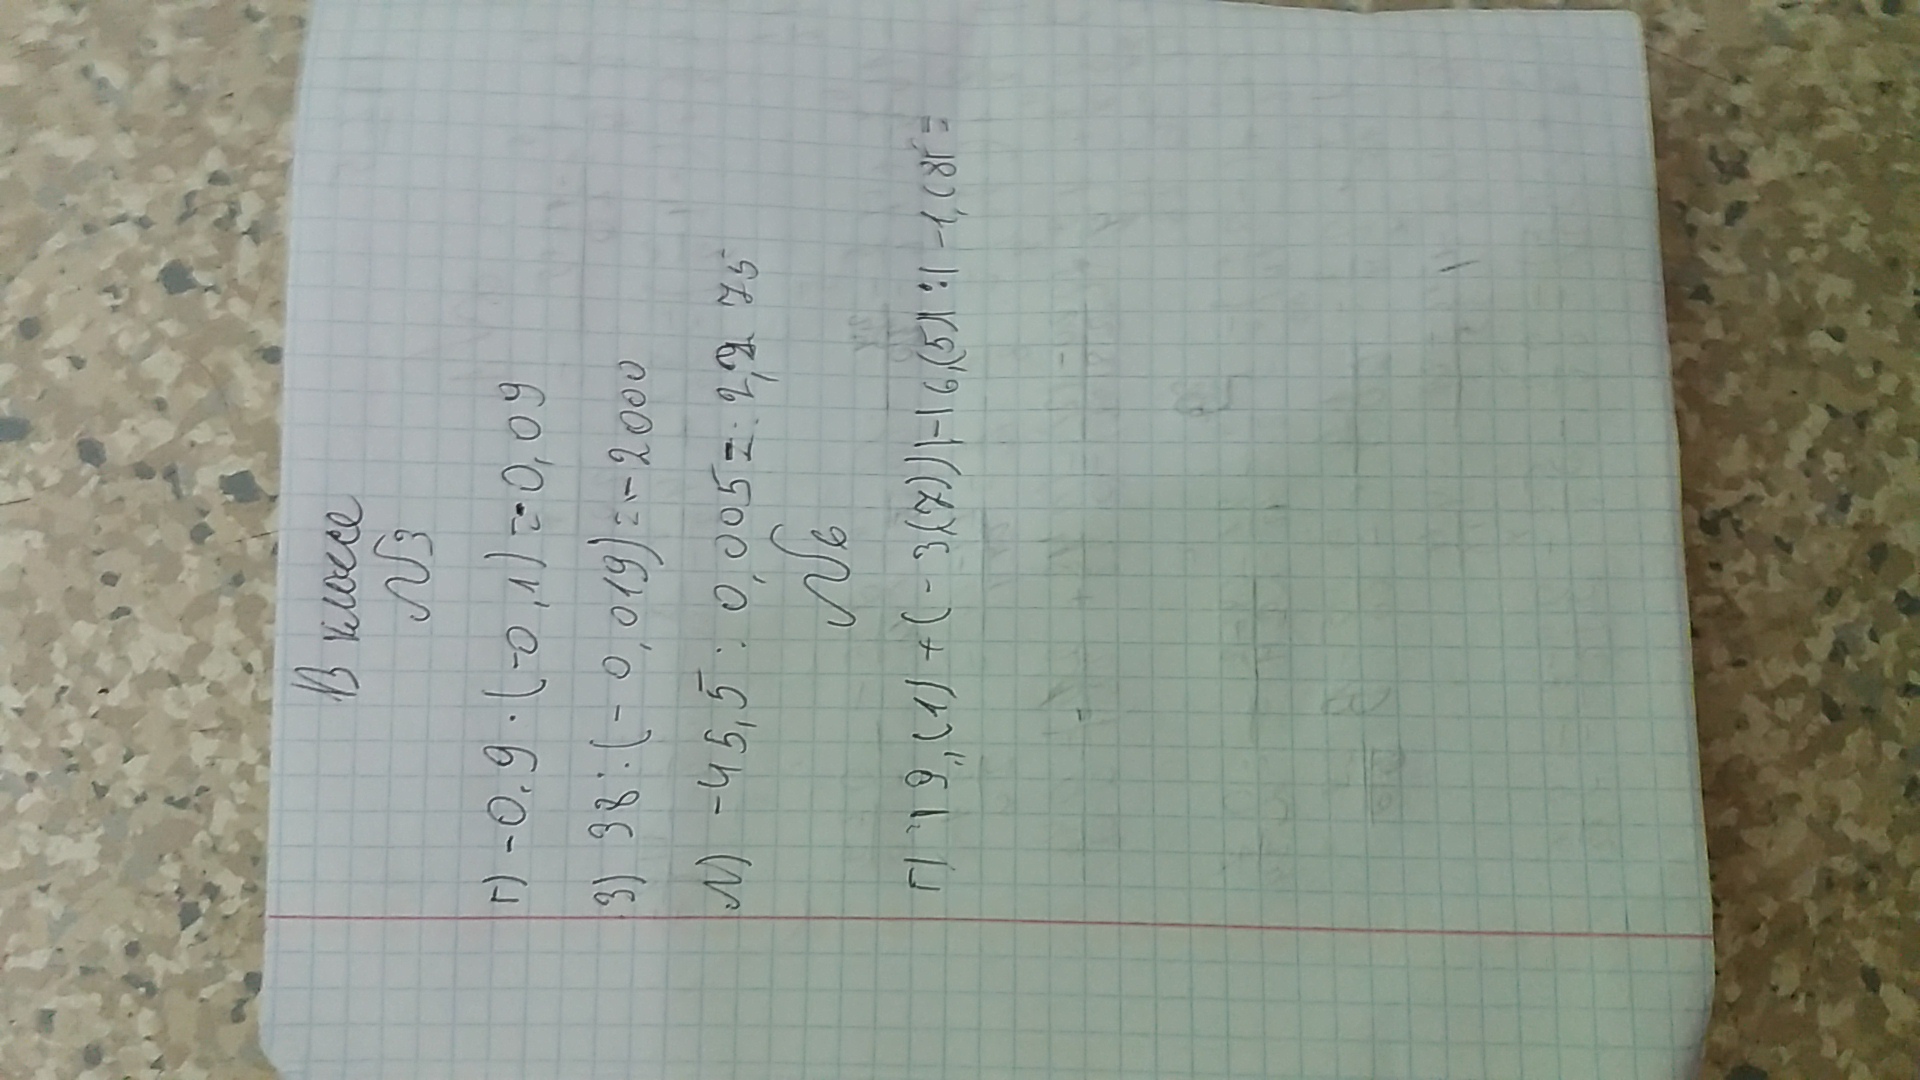 В классе
№3
г) -0,9 · (-0,1) = 0,09
з) 38 : (-0,019) = -2000
м) -45,5 : 0,005 =
№6
г) 19,(1) + (-3(7))|-| 6,(5)| : | -1,(8)| =